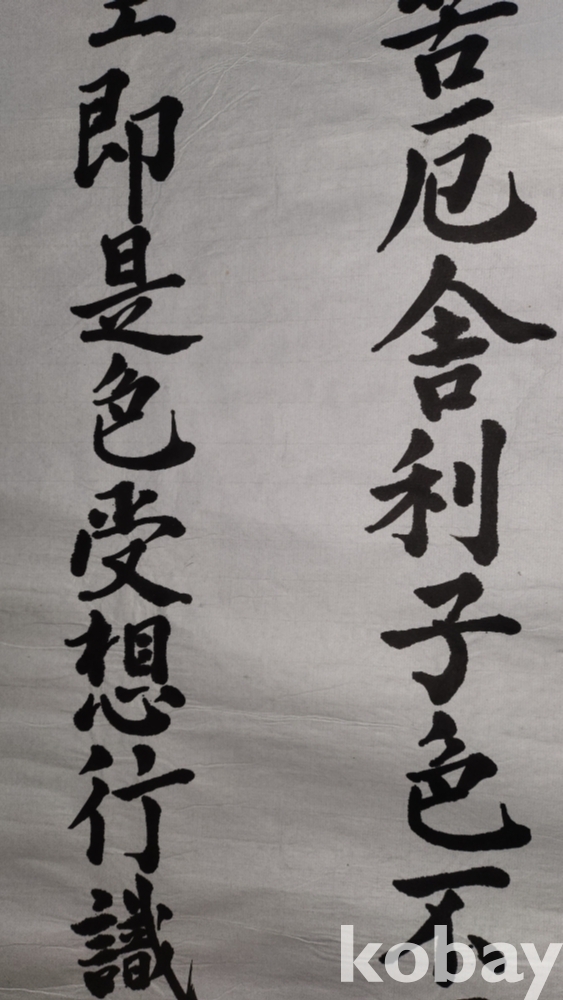 苦厄舎利子色不
空即是色受想行識
kobay